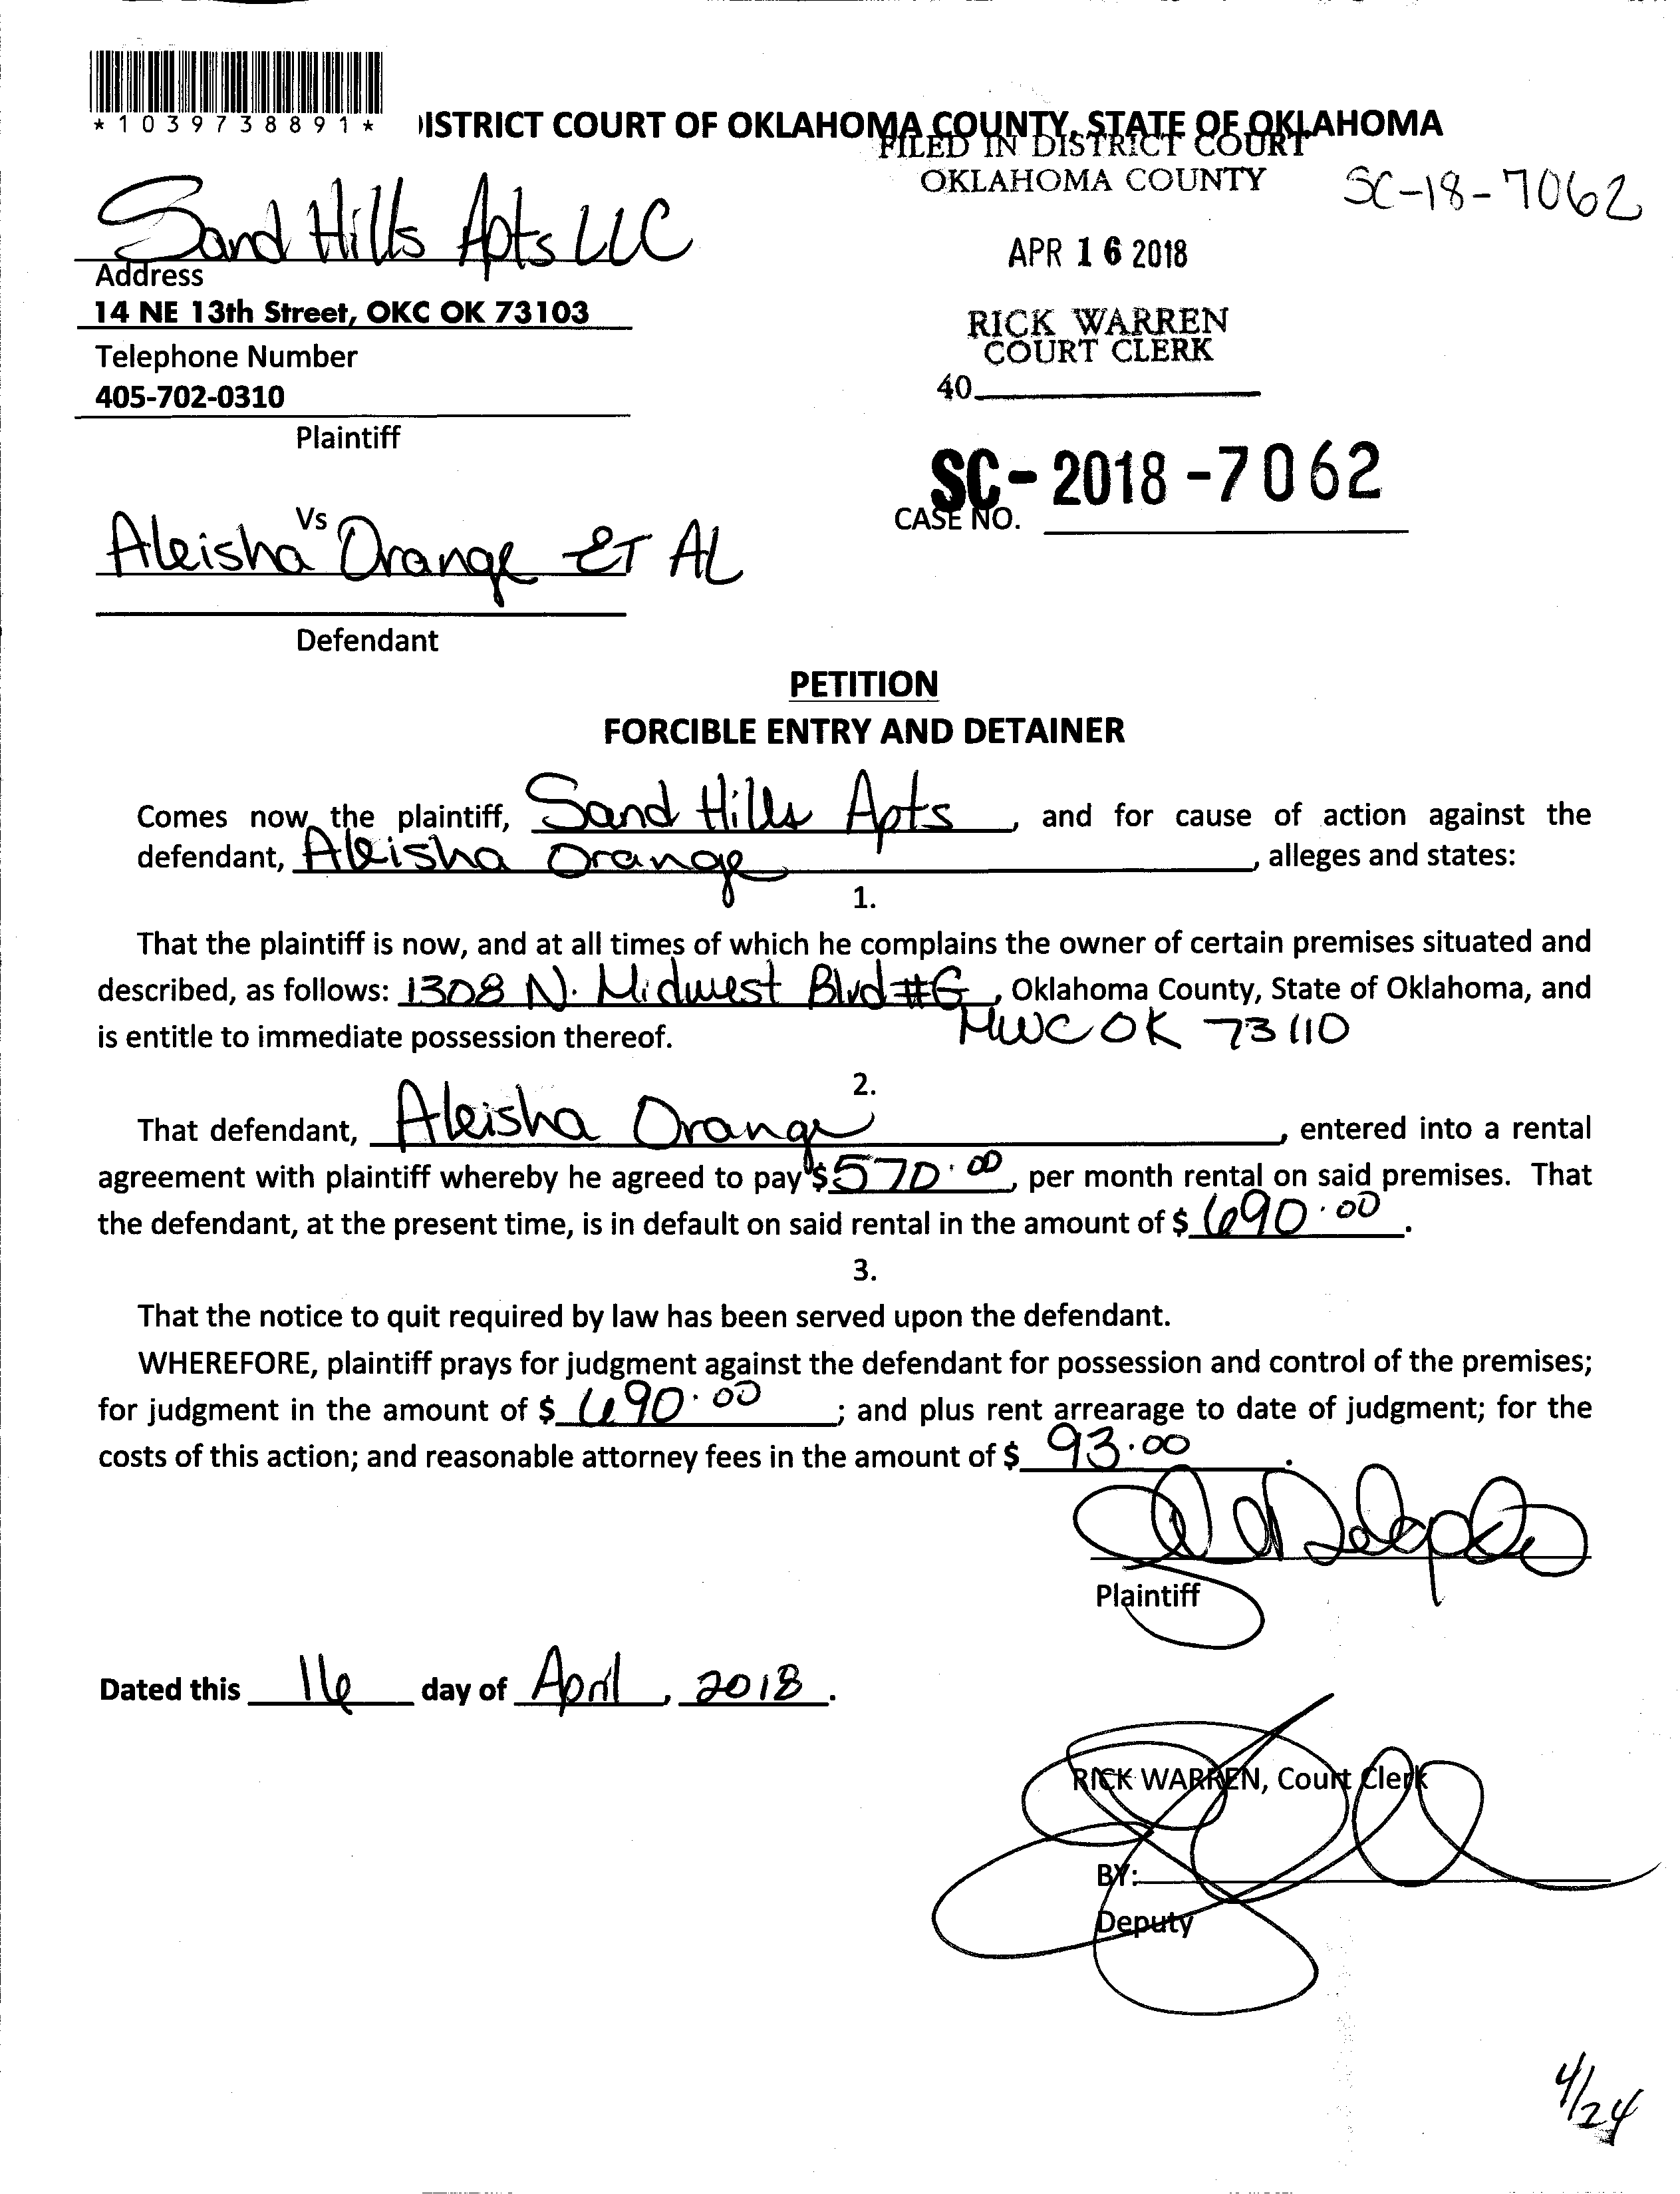 *1039738891*
ISTRICT COURT OF OKLAHOMA COUNTY, STATE OF OKLAHOMA
FILED IN DISTRICT COURT
OKLAHOMA COUNTY
SC-18-7062
Sand Hills Apts LLC
APR 16 2018
Address
14 NE 13th Street, OKC OK 73103
RICK WARREN
COURT CLERK
Telephone Number
40
405-702-0310
Plaintiff
SC-2018-7062
CASE NO.
Vs
Aleisha Orange ET AL
Defendant
PETITION
FORCIBLE ENTRY AND DETAINER
Comes now the plaintiff, Sand Hills Apts, and for cause of action against the
defendant, Aleisha Orange, alleges and states:
1.
That the plaintiff is now, and at all times of which he complains the owner of certain premises situated and
described, as follows: 1308 N. Midwest Blvd #G, Oklahoma County, State of Oklahoma, and
MWC OK 73110
is entitle to immediate possession thereof.
2.
That defendant, Aleisha Orange, entered into a rental
agreement with plaintiff whereby he agreed to pay $570.00, per month rental on said premises. That
the defendant, at the present time, is in default on said rental in the amount of $ 690.00.
3.
That the notice to quit required by law has been served upon the defendant.
WHEREFORE, plaintiff prays for judgment against the defendant for possession and control of the premises;
for judgment in the amount of $ 690.00; and plus rent arrearage to date of judgment; for the
costs of this action; and reasonable attorney fees in the amount of $ 93.00.
Plaintiff
Dated this 16 day of April, 2018.
RICK WARREN, Court Clerk
BY:
Deputy
4/24